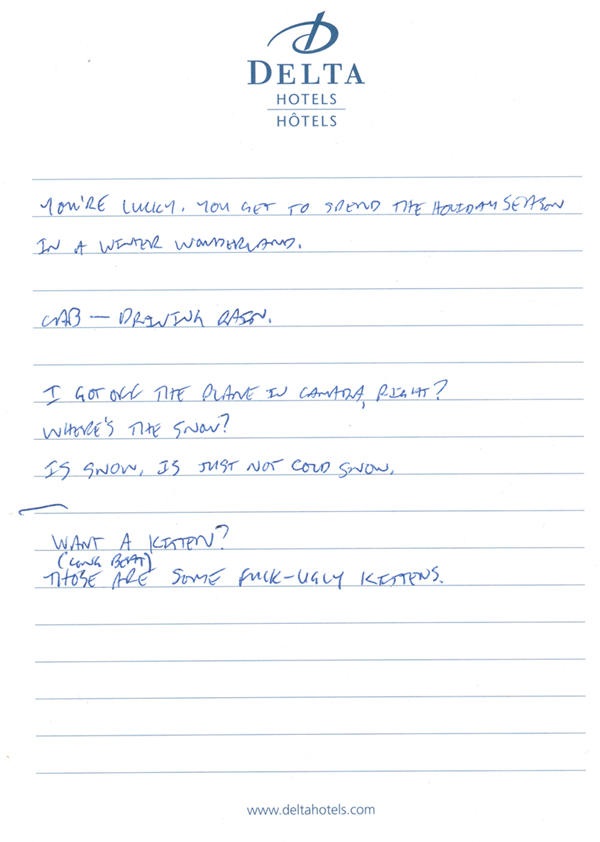 DELTA
HOTELS
HÔTELS
YOU'RE LUCKY. YOU GET TO SPEND THE HOLIDAY SEASON
IN A WINTER WONDERLAND.
CAB — DRIVING RAIN.
I GOT OFF THE PLANE IN CANADA, RIGHT?
WHERE'S THE SNOW?
IS SNOW, IS JUST NOT COLD SNOW.
WANT A KITTEN?
(LONG BEAT)
THOSE ARE SOME FUCK-UGLY KITTENS.
www.deltahotels.com